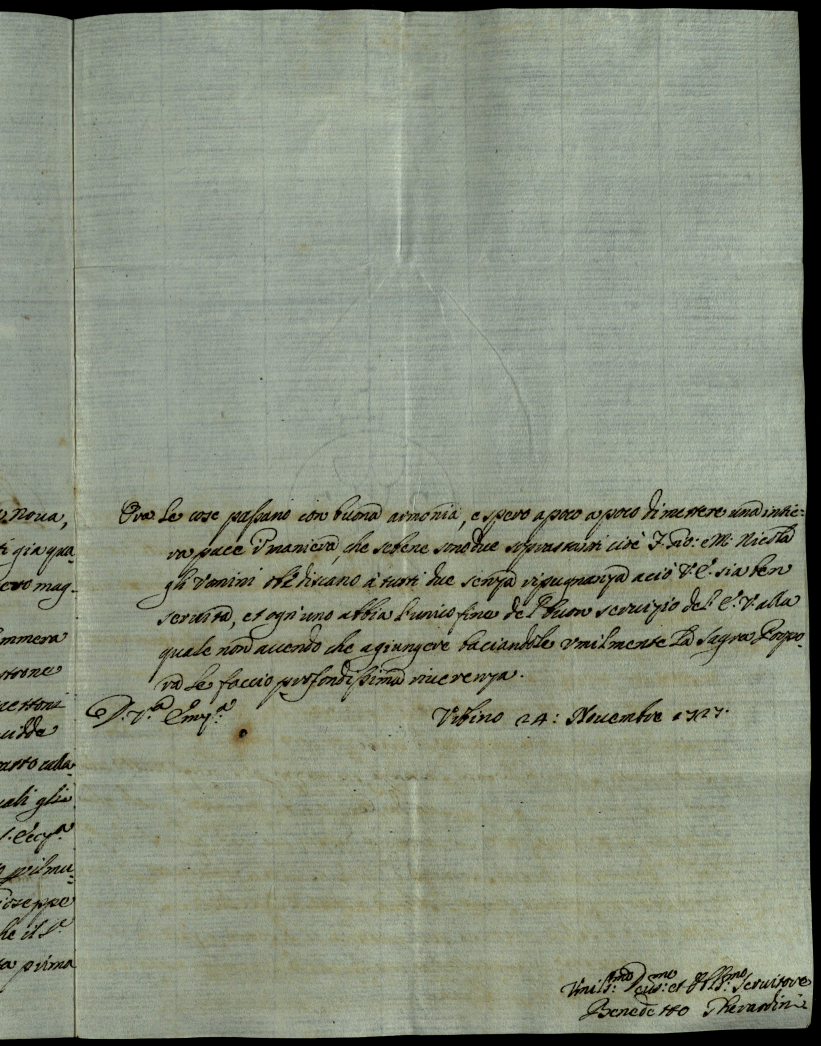 Nova,
ti già qua-
ero mag-
mmera
strone
cettoni
uidde
arto calla
uali glie
Eccza
pilmu-
ioseppe
he il Sr
ta prima
Ora le cose passano con buona armonia, e spero a poco a poco di mettere una intie-
ra pace in maniera, che sebene sono due soprastanti cioè F. Gio: e M. Nicola
gli Uomini obbidiscano à tutti due senza ripugnanza acio V. E. sia ben
servita, et ogn'uno abbia l'unico fine del buon servizio del E. V. alla
quale non avendo che agiungere baciandole umilmente la Sagra Porpo-
ra le faccio profondissima riverenza.
D. Va Emza Urbino 24: Novembre 1727.
Umilssmo Devmo: et Obblmo: Servitore
Benedetto